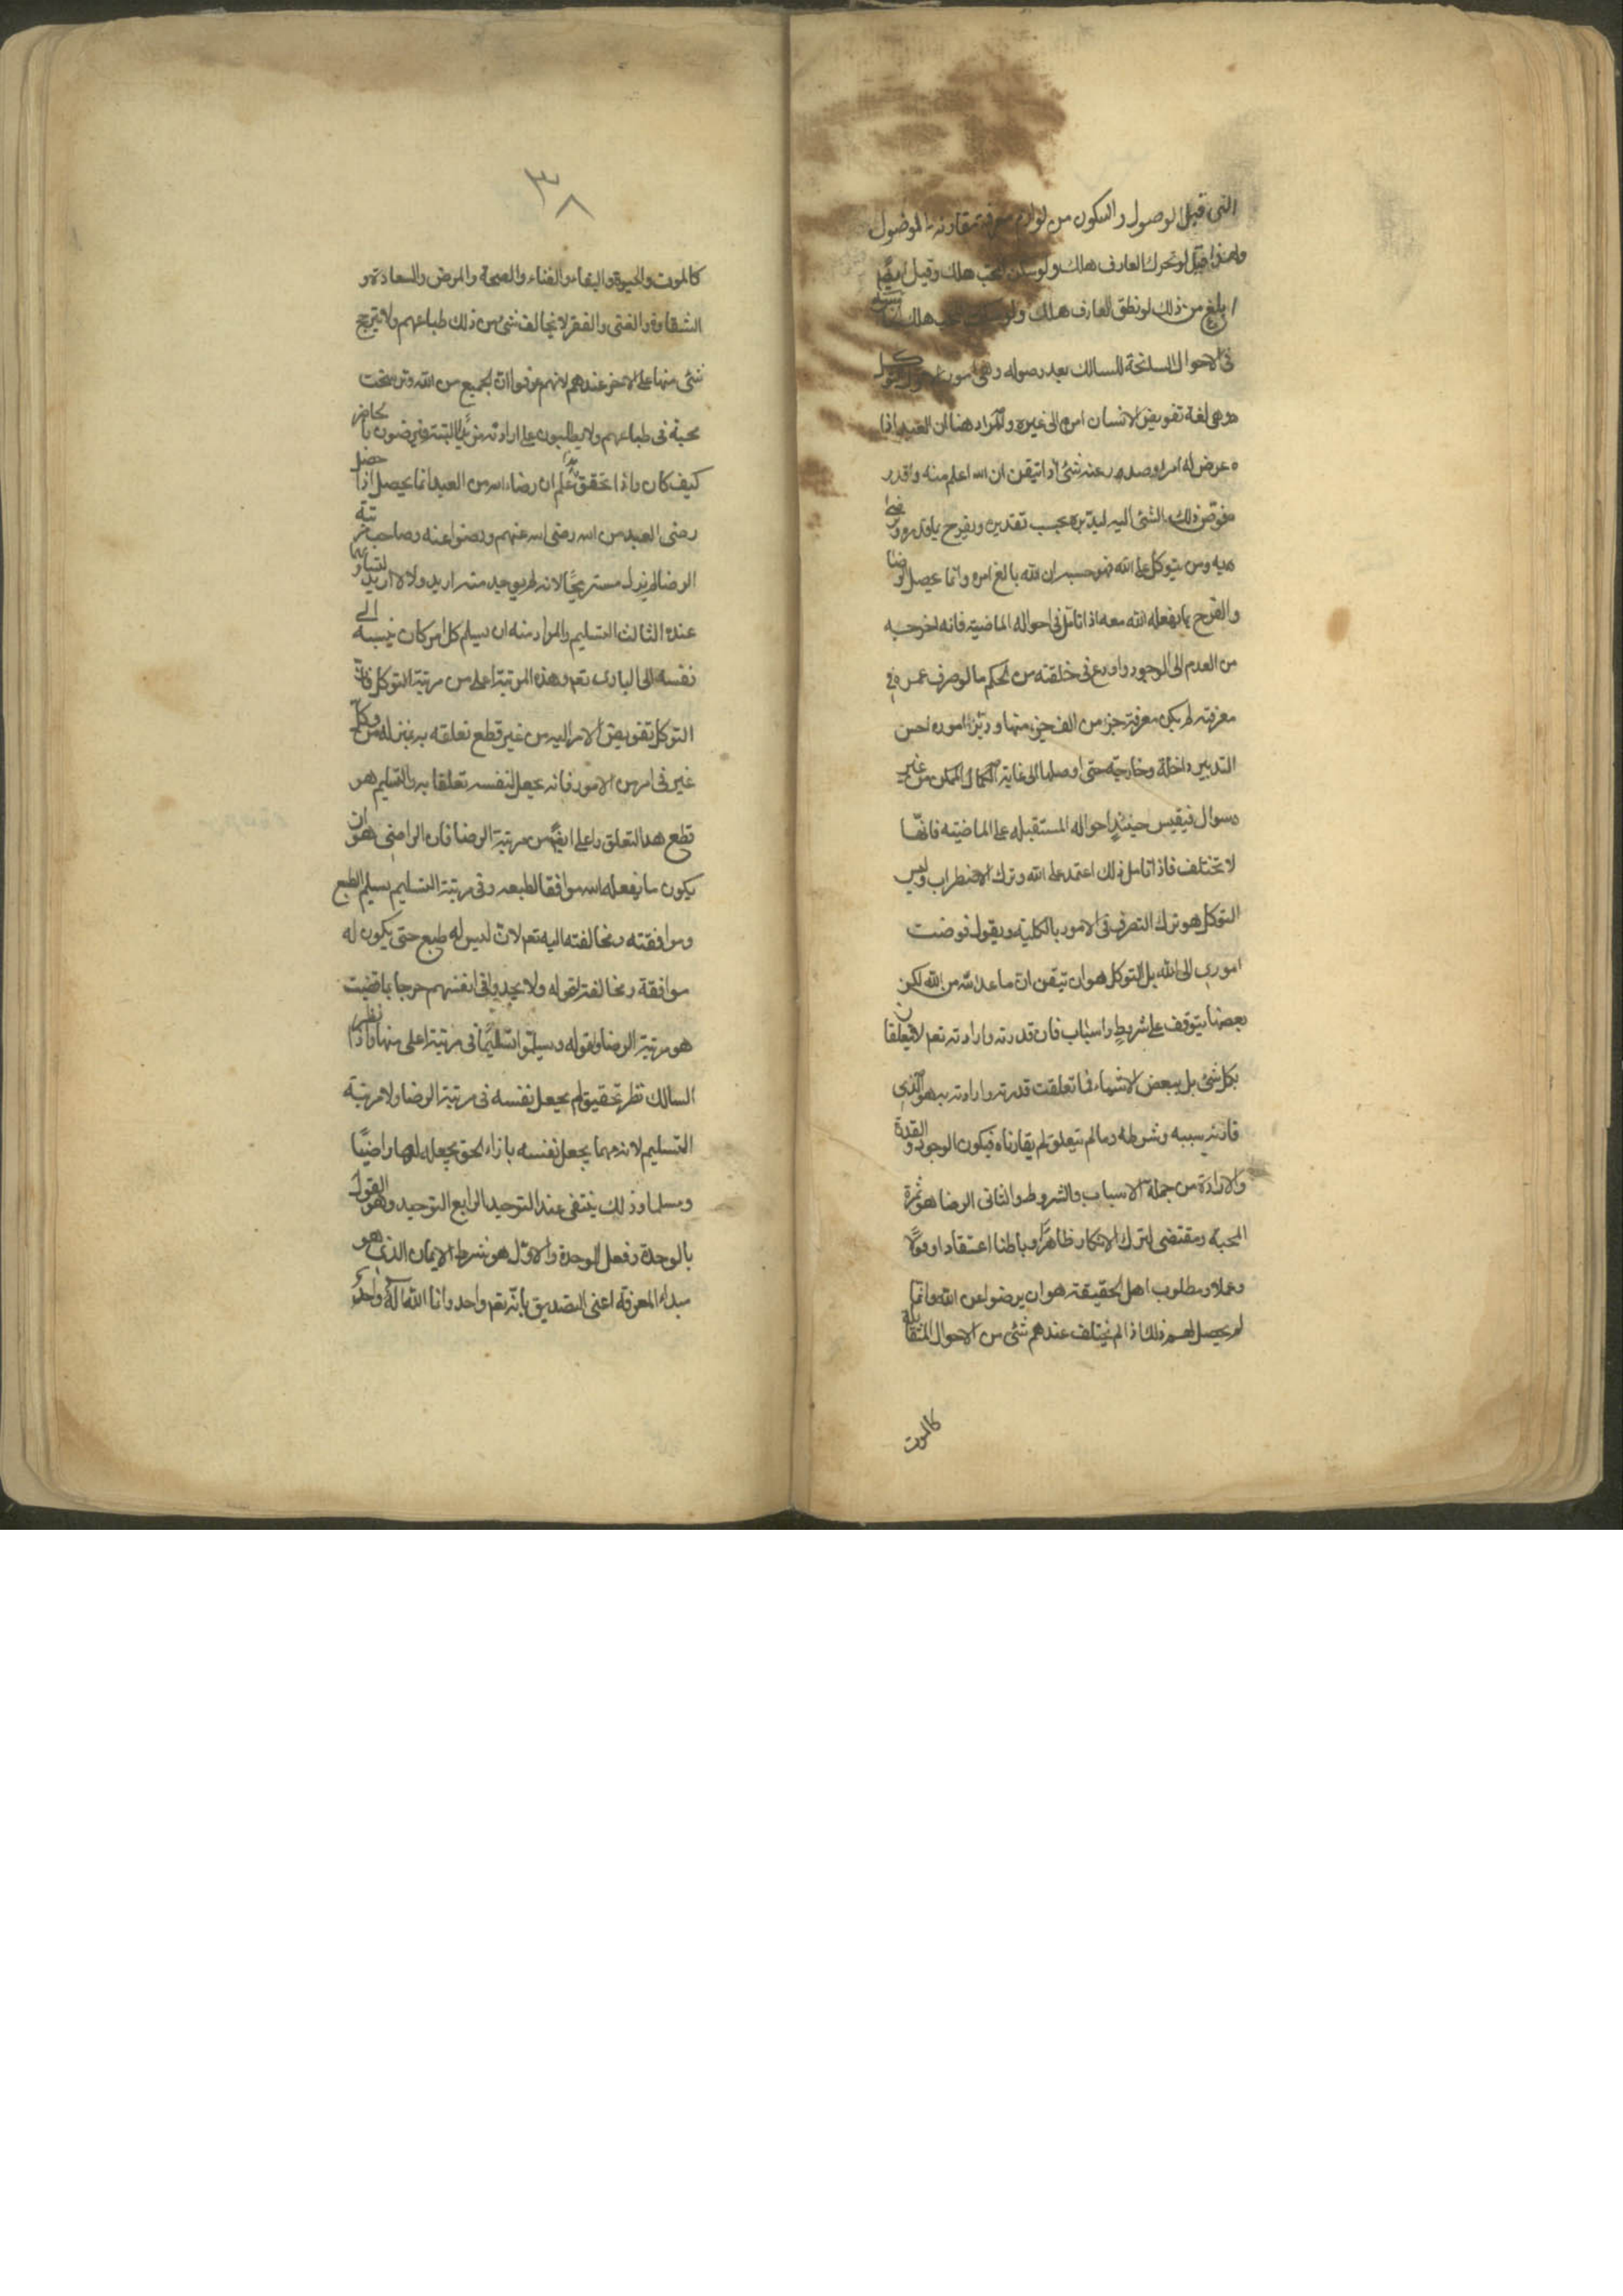 التى قبل الوصول والسكون من لوازم معرفة مقارنه الموصول
ولهذا قيل لو تحرك العارف هلك ولو سكن المحب هلك وقيل ايضا
ابلغ من ذلك لو نطق العارف هلك ولو سكت المحب هلك
فى الاحوال السانحة للسالك بعد وصوله وهى امور الاول التوكل
وهى لغة تفويض الانسان امره الى غيره والمراد هنا ان العبد اذا
عرض له امر او صدر عنه شئ اذا تيقن ان الله اعلم منه واقدر
فوض ذلك الشئ اليه ليدبره بحسب تقديره ويفرح بما قدره
ومن يتوكل على الله فهو حسبه ان الله بالغ امره وانما يحصل الرضا
والفرح بما يفعله الله معه اذا تامل فى احواله الماضية فانه اخرجه
من العدم الى الوجود واودع فى خلقته من الحكم ما لو صرف عمره فى
معرفته لم يكن معرفة جزء من الف جزء منها ودبر اموره احسن
التدبير داخلة وخارجة حتى اوصلها الى غاية الكمال الممكن من غير
سوال فيقيس حينئذ احواله المستقبله على الماضيته فانها
لا تختلف فاذا تامل ذلك اعتمد على الله وترك الاضطراب وليس
التوكل هو ترك التصرف فى الامور بالكلية ويقول فوضت
امورى الى الله بل التوكل هو ان تيقن ان ما عدا الله من الله لكن
بعضها يتوقف على شروط واسباب فان قدرته وارادته تعم لا يتعلقان
بكل شئ بل ببعض الاشياء فما تعلقت قدرته وارادته به هو الذى
قارنه سببه وشرطه وما لم يتعلق لم يقارناه فيكون الوجود والقدرة
والارادة من جملة الاسباب والشروط والثانى الرضا هو ثمرة
المحبة ومقتضى لترك الانكار ظاهرا وباطنا اعتقادا وقولا
وعملا ومطلوب اهل الحقيقة هو ان يرضوا عن الله وانما
يحصل لهم ذلك اذا لم يختلف عندهم شئ من الاحوال المتقابلة
كالموت
٣٨
كالموت والحيوة والبقاء والفناء والصحة والمرض والسعادة و
الشقاوة والغنى والفقر لا يخالف شئ من ذلك طباعهم ولا يترجح
شئ منها على الاخر عندهم لانهم عرفوا ان الجميع من الله وترسخت
محبة فى طباعهم ولا يطلبون على ارادته مزيدا البتة فيرضون بالحاضر
كيف كان واذا تحقق هذا علم ان رضاء الله من العبد انما يحصل اذا حصل
رضى العبد من الله رضى الله عنهم ورضوا عنه وصاحب مرتبة
الرضا لم يزل مستريحا لانه لم يوجد منه اريد ولا لا اريد
عنده الثالث التسليم والمراد منه ان يسلم كل امر كان ينسبه الى
نفسه الى البارى تعم وهذه المرتبة اعلى من مرتبة التوكل فان
التوكل تفويض الامر اليه من غير قطع تعلقه به بمنزلة من وكل
غيره فى امر من الامور فانه يجعل لنفسه تعلقا به والتسليم هو
قطع هذا التعلق واعلى ايضا من مرتبة الرضا فان الراضى هو ان
يكون ما يفعله الله موافقا لطبعه وفى مرتبة التسليم يسلم الطبع
وموافقته ومخالفته اليه تعم لان ليس له طبع حتى يكون له
موافقة ومخالفة لقوله ولا يجدوا فى انفسهم حرجا مما قضيت
هو مرتبة الرضا وقوله ويسلموا تسليما فى مرتبة اعلى منها واذا نظر
السالك نظر تحقيق لم يجعل نفسه فى مرتبة الرضا ولا مرتبة
التسليم لانه مهما يجعل نفسه بازاء الحق يجعله لها راضيا
ومسلما وذلك ينتفى عند التوحيد الرابع التوحيد وهو القول
بالوحدة وفعل الوحدة والاول هو شرط الايمان الذى هو
مبداء المعرفة اعنى التصديق بانه تعم واحد وانما الله اله واحد